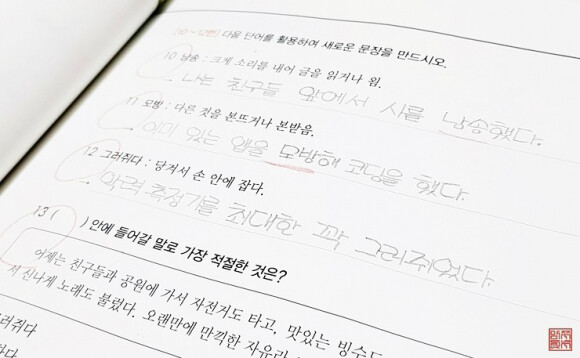 [10~12번] 다음 단어를 활용하여 새로운 문장을 만드시오.
10 낭송 : 크게 소리를 내어 글을 읽거나 욈.
→ 나는 친구들 앞에서 시를 낭송했다.
11 모방 : 다른 것을 본뜨거나 본받음.
→ 이미 있는 앱을 모방해 코딩을 했다.
12 그러쥐다 : 당겨서 손 안에 잡다.
→ 악력 측정기를 최대한 꽉 그러쥐었다.
13 ( ) 안에 들어갈 말로 가장 적절한 것은?
어제는 친구들과 공원에 가서 자전거도 타고, 맛있는 빙수도
서 신나게 노래도 불렀다. 오랜만에 만끽한 자유라
그러쥐다
하다